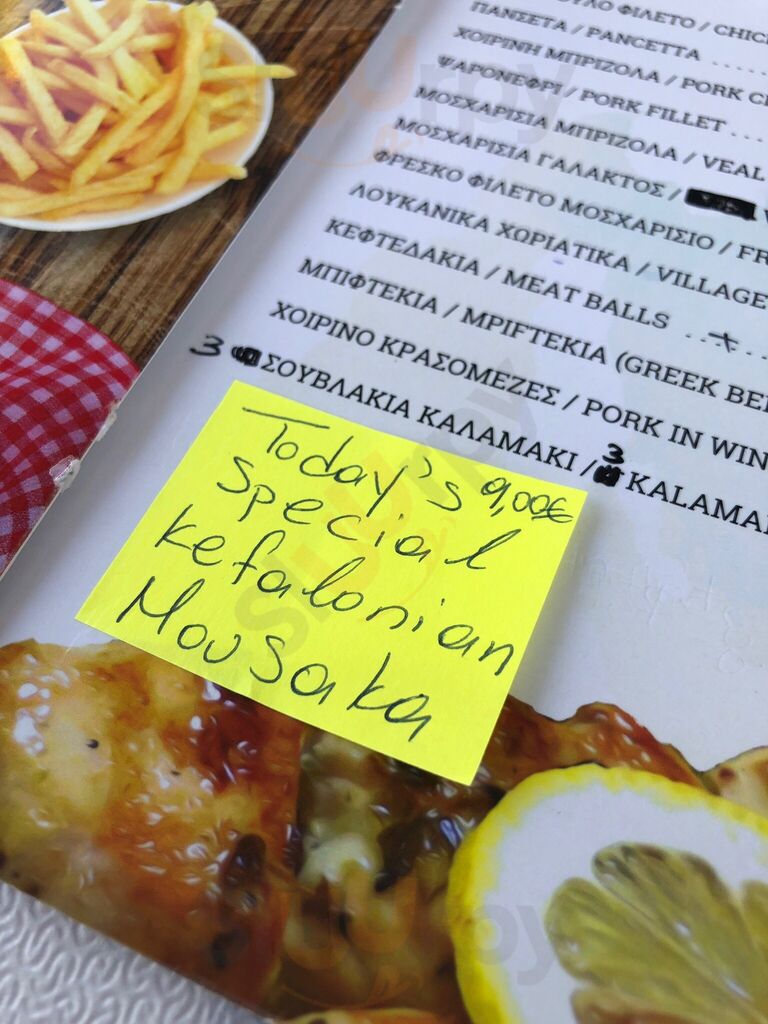 ΦΙΛΕΤΟ / CHIC
ΠΑΝΣΕΤΑ / PANCETTA .....
ΧΟΙΡΙΝΗ ΜΠΡΙΖΟΛΑ / PORK C
ΨΑΡΟΝΕΦΡΙ / PORK FILLET ....
ΜΟΣΧΑΡΙΣΙΑ ΜΠΡΙΖΟΛΑ / VEAL
ΜΟΣΧΑΡΙΣΙΑ ΓΑΛΑΚΤΟΣ /
ΦΡΕΣΚΟ ΦΙΛΕΤΟ ΜΟΣΧΑΡΙΣΙΟ / FR
ΛΟΥΚΑΝΙΚΑ ΧΩΡΙΑΤΙΚΑ / VILLAGE
ΚΕΦΤΕΔΑΚΙΑ / MEAT BALLS ....
ΜΠΙΦΤΕΚΙΑ / MPIFTEKIA (GREEK BE
ΧΟΙΡΙΝΟ ΚΡΑΣΟΜΕΖΕΣ / PORK IN WIN
3 ΣΟΥΒΛΑΚΙΑ ΚΑΛΑΜΑΚΙ / 3 KALAMA
Today's 9,00€
special
kefalonian
Mousaka
sluurpy